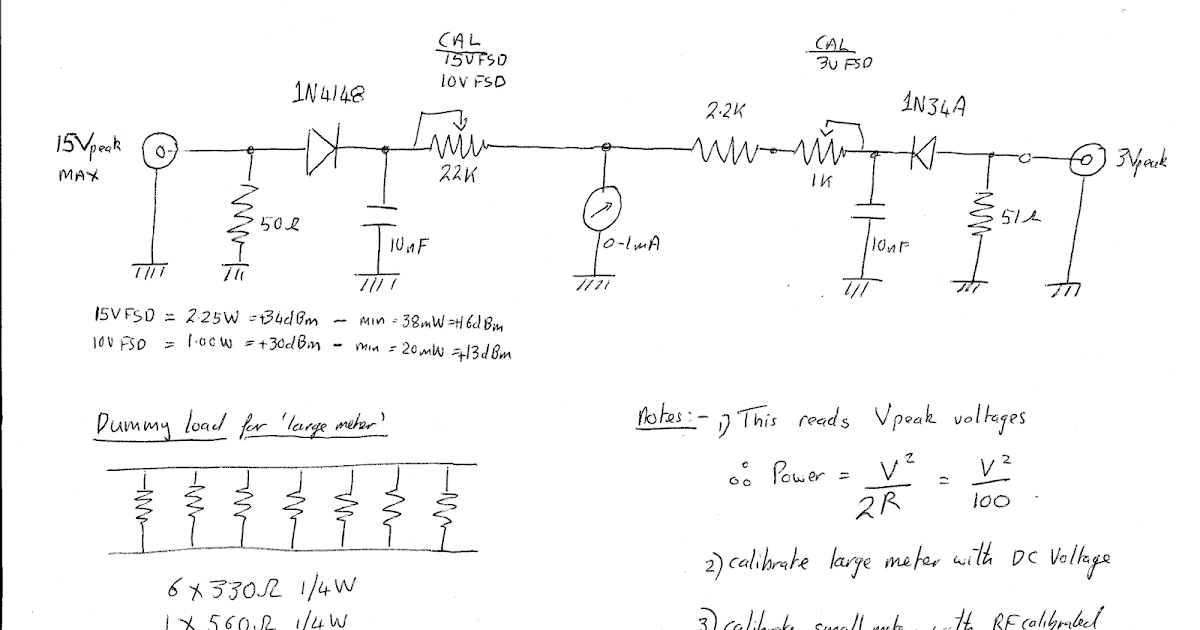 CAL
15VFSD
10V FSD
CAL
3V FSD
1N4148
2.2K
1N34A
15Vpeak
MAX
22K
1K
3Vpeak
50Ω
10nF
0-1mA
10nF
51Ω
15VFSD = 2.25W = +34dBm - min = 38mW = +16dBm
10V FSD = 1.00W = +30dBm - min = 20mW = +13dBm
Dummy load for 'large meter'
6 x 330Ω 1/4W
1 x 560Ω 1/4W
Notes:- 1) This reads Vpeak voltages
∴ Power = V² / 2R = V² / 100 .
2) calibrate large meter with DC Voltage
3) calibrate small meter with RF calibrated